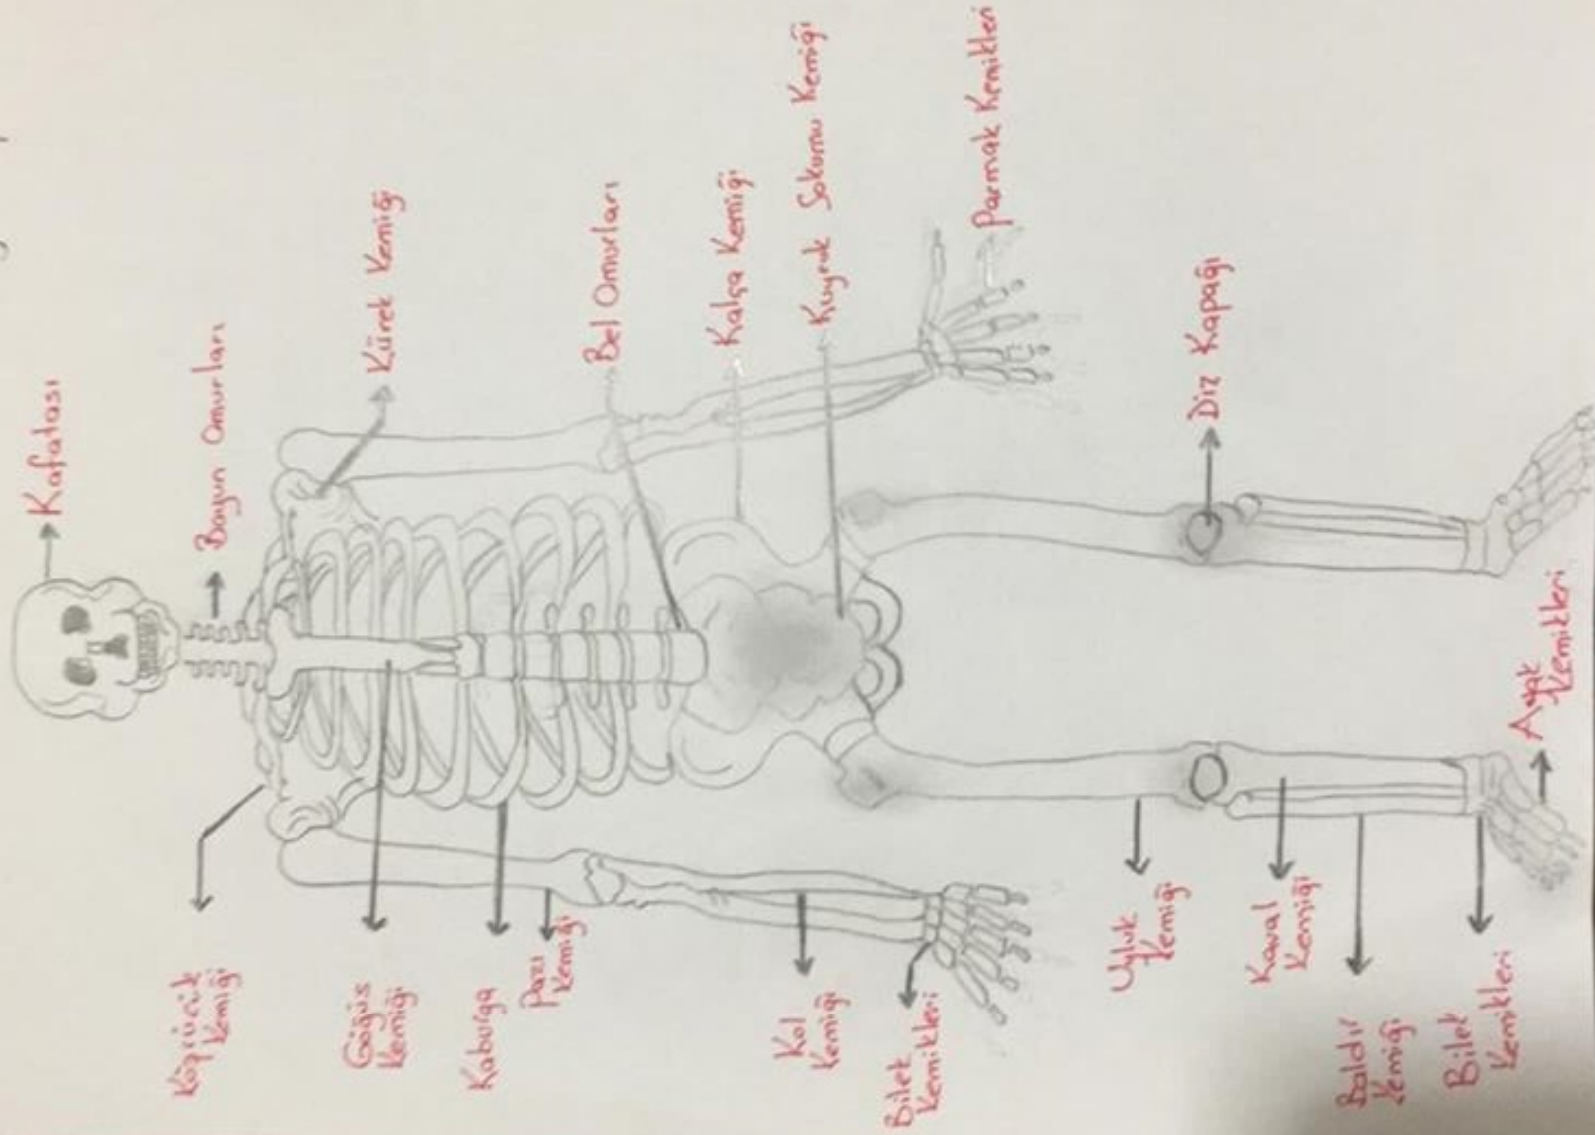 Kafatası
Boyun Omurları
Kürek Kemiği
Bel Omurları
Kalça Kemiği
Kuyruk Sokumu Kemiği
Parmak Kemikleri
Diz Kapağı
Ayak
Kemikleri
Köprücük
Kemiği
Göğüs
Kemiği
Kaburga
Pazı
Kemiği
Kol
Kemiği
Bilek
Kemikleri
Uyluk
Kemiği
Kaval
Kemiği
Baldır
Kemiği
Bilek
Kemikleri